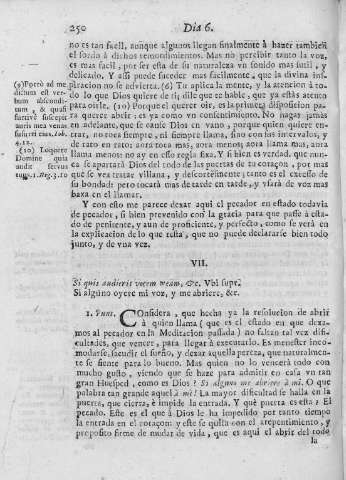 250 Dia 6.
no es tan facil, aunque algunos llegan finalmente à hazer tambien
el sordo à dichos remordimientos. Mas no percibir tanto la voz,
es mas facil, por ser esta de su naturaleza un sonido mas sutil, y
delicado. Y assi puede suceder mas facilmente, que la divina ins-
piracion no se advierta. (6) Tu aplica la mente, y la atencion à to-
do lo que Dios quiere de ti; dile que te hable, que ya estàs atento
para oirle. (10) Porque el querer oir, es la primera disposicion pa
ra querer abrir; es ya como vn consentimiento. No hagas jamàs
en adelante, que se canse Dios en vano, porque quien quiere en-
trar, no toca siempre, ni siempre llama, sino con sus intervalos, y
de rato en rato: aora toca mas, aora menos; aora llama mas, aora
llama menos: no ay en esto regla fixa. Y si bien es verdad, que nun-
ca se apartarà Dios del todo de las puertas de tu coraçon, por mas
que se vea tratar villana, y descortèsmente; tanto es el excesso de
su bondad: pero tocarà mas de tarde en tarde, y vsarà de voz mas
baxa en el llamar.
(9) Porrò ad me
dictum est ver-
bum abscondi-
tum, & quasi
furtivè suscepit
auris mea venas
susurri eius. Iob.
4. 12.
(10) Loquere
Domine quia
audit servus
tuus. 1. Reg. 3. 10
Y con esto me parece dexar aqui el pecador en estado todavia
de pecador, si bien prevenido con la gracia para que passe à esta-
do de penitente, y aun de proficiente, y perfecto, como se verà en
la explicacion de lo que resta, que no puede declararse bien todo
junto, y de vna vez.
VII.
Si quis audierit vocem meam, &c. Vbi supr.
Si alguno oyere mi voz, y me abriere, &c.
1. Punt. COnsidera, que hecha ya la resolucion de abrir
à quien llama (que es el estado en que dexa-
mos al pecador en la Meditacion passada) no faltan tal vez difi-
cultades, que vencer, para llegar à executarlo. Es menester inco-
modarse, sacudir el sueño, y dexar aquella pereza, que naturalmen-
te se siente para lo bueno. Mas quien no lo vencerà todo con
mucho gusto, viendo que se haze para admitir en casa vn tan
gran Huesped, como es Dios? Si alguno me abriere à mi. O que
palabra tan grande aquel à mi! La mayor dificultad se halla en la
puerta, que cierra, è impide la entrada. Y què puerta es esta? El
pecado. Este es el que à Dios le ha impedido por tanto tiempo
la entrada en el coraçon: y este se quita con el arrepentimiento, y
proposito firme de mudar de vida, que es aqui el abrir del todo
la